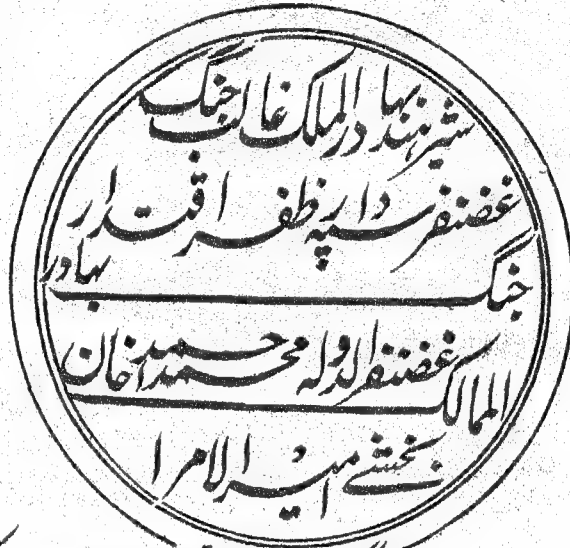 شیر هند بهادر الملک غالب جنگ
غضنفر سپه دار ظفر اقتدار
جنگ بهادر
غضنفر الدوله محمد احمد خان
الممالک
بخشی امیر الامرا